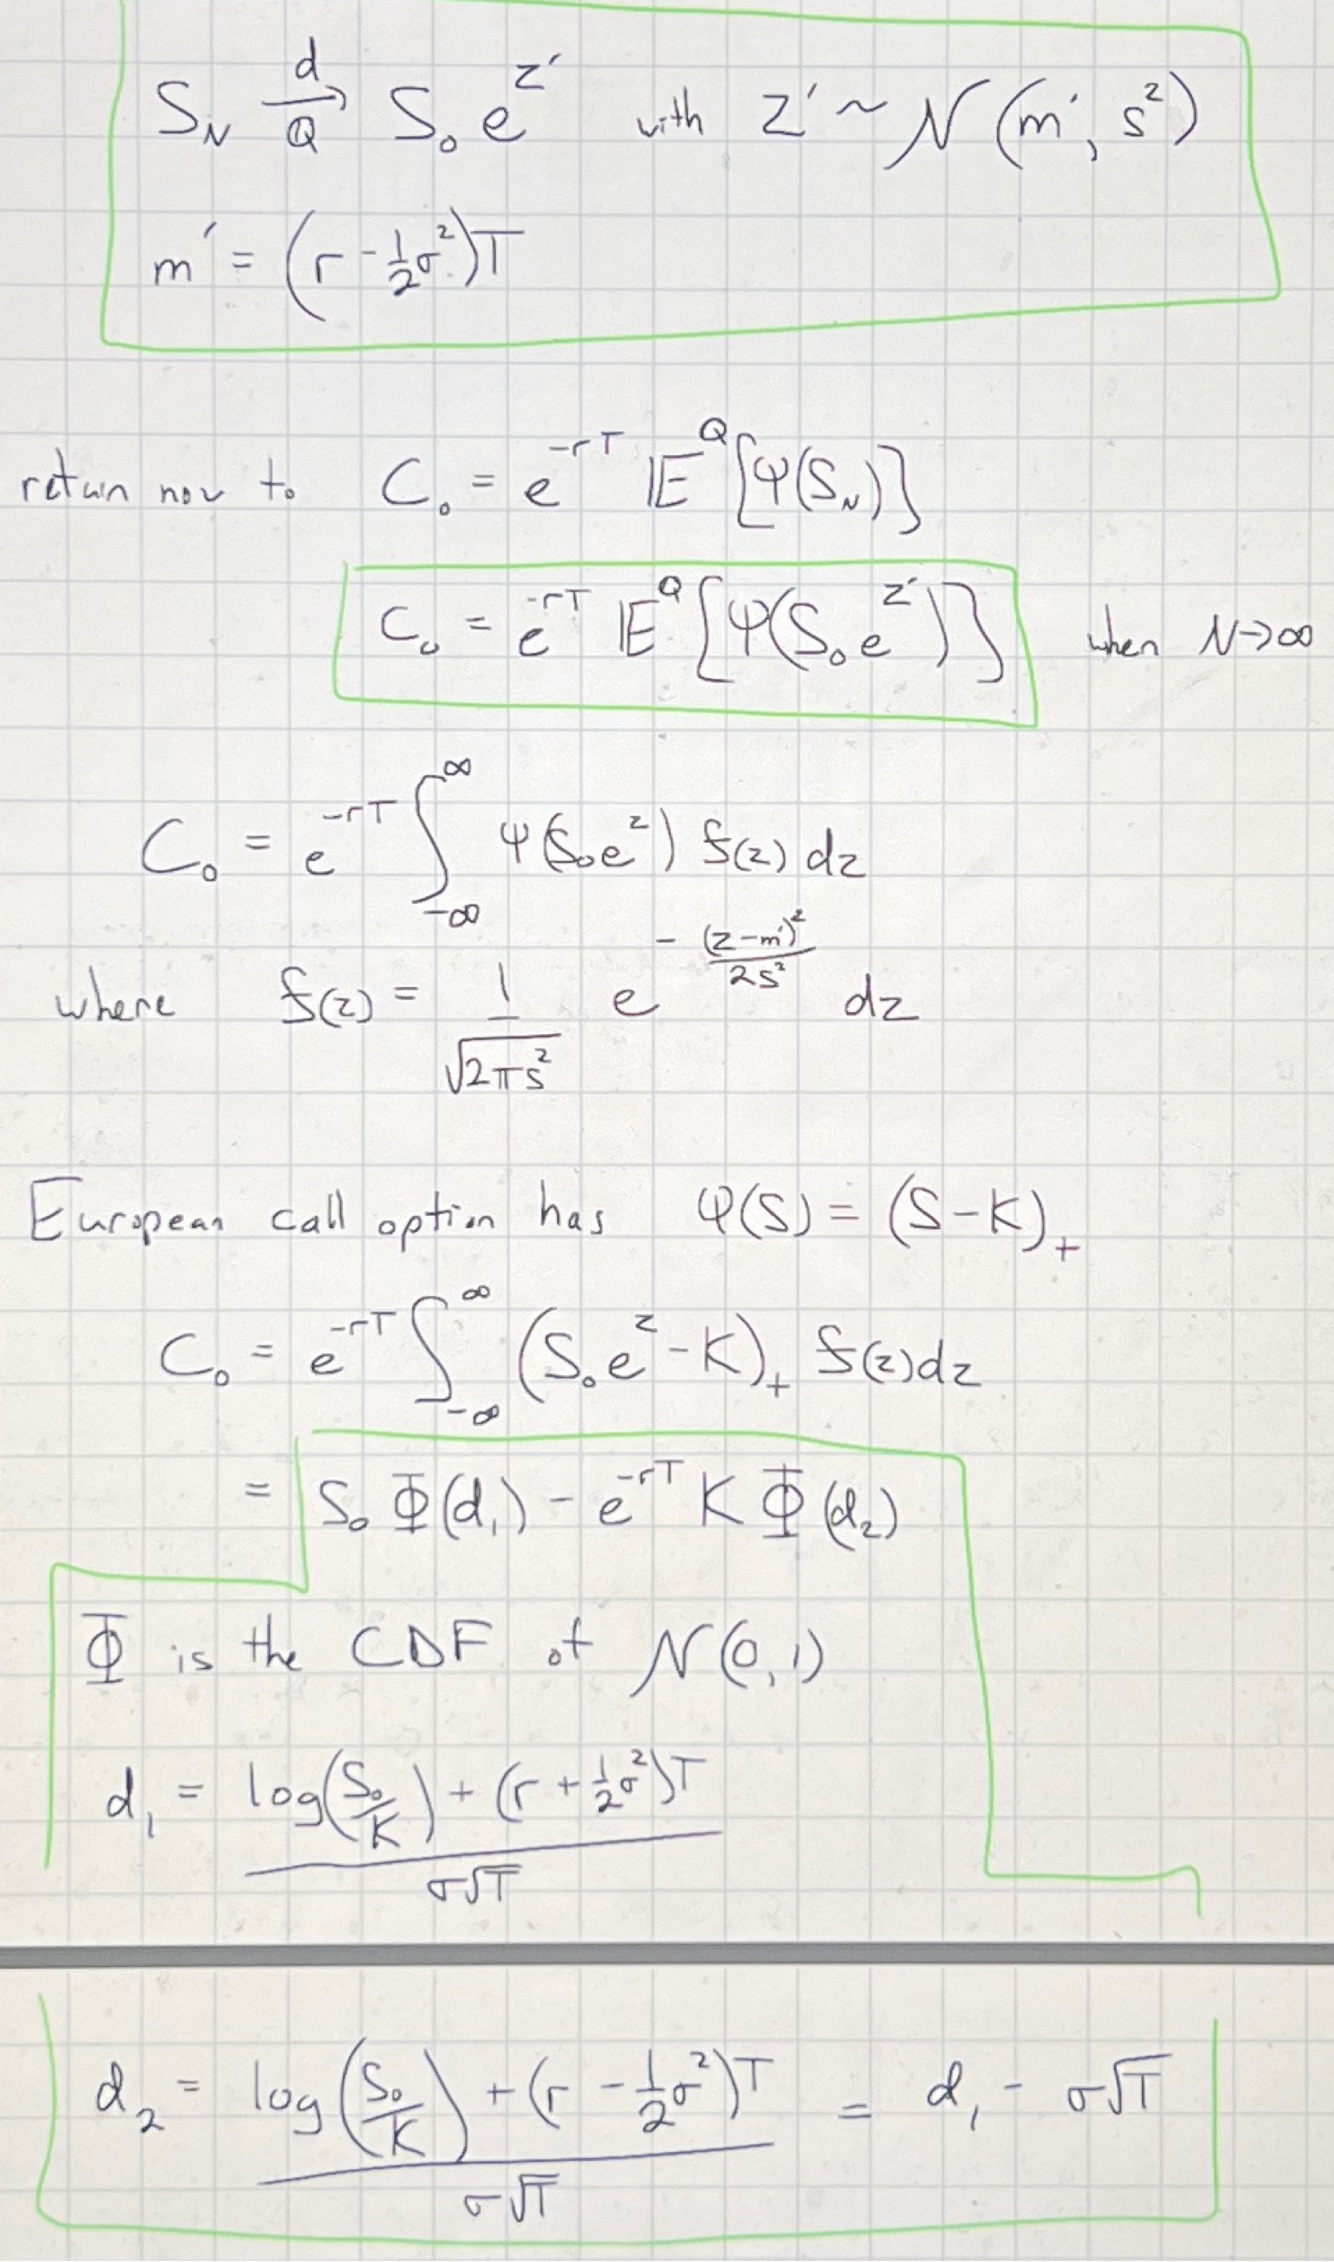 S_N →^d_Q S_0 e^{Z'} with Z' ~ N(m', s²)
m' = (r - ½σ²)T
return now to C_0 = e^{-rT} 𝔼^Q[Ψ(S_N)]
C_0 = e^{-rT} 𝔼^Q[Ψ(S_0 e^{Z'})] when N→∞
C_0 = e^{-rT} ∫_{-∞}^{∞} Ψ(S_0 e^z) f(z) dz
where f(z) = 1/√(2πs²) e^{-(z-m')²/2s²} dz
European call option has Ψ(S) = (S-K)_+
C_0 = e^{-rT} ∫_{-∞}^{∞} (S_0 e^z - K)_+ f(z) dz
= S_0 Φ(d_1) - e^{-rT} K Φ(d_2)
Φ is the CDF of N(0,1)
d_1 = (log(S_0/K) + (r + ½σ²)T) / σ√T
d_2 = (log(S_0/K) + (r - ½σ²)T) / σ√T = d_1 - σ√T